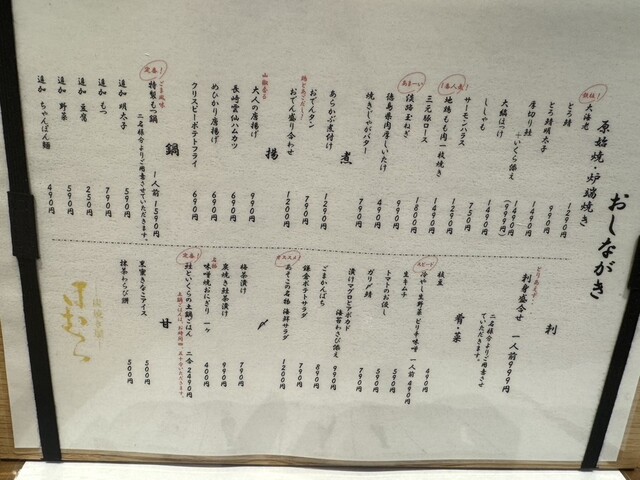 おしながき
原始焼・炉端焼き
大海老
とろ鯖 1290円
とろ鯖明太子 990円
厚切り鮭 1490円
+いくら添え 1490円(999円)
大縞ほっけ 1490円
ししゃも
サーモンハラス 750円
1番人気!
地鶏もも肉一枚焼き 1490円
三元豚ロース 1800円
あま〜い
淡路玉ねぎ 490円
徳島県肉厚しいたけ 990円
焼きじゃがバター 790円
煮
あらかぶ煮付け 1290円
おでんタン 790円
鶏とあごだし!
おでん盛り合わせ 1200円
揚
山椒香る
大人の唐揚げ 990円
長崎雲仙ハムカツ 690円
めひかり唐揚げ 690円
クリスピーポテトフライ 690円
鍋
ごま風味
定番!
特製もつ鍋 1人前1590円
二名様分よりご用意させていただきます。
追加 明太子 590円
追加 もつ 790円
追加 豆腐 250円
追加 野菜 590円
追加 ちゃんぽん麺 490円
刺
とりあえず!
刺身盛合せ 一人前999円
二名様分よりご用意させていただきます。
肴・菜
枝豆 490円
スピード
冷やし生野菜 ピリ辛味噌 一人前490円
生キムチ 590円
トマトのお浸し 590円
ガリ〆鯖 790円
漬けマグロとアボカド 海苔わさび添え 890円
ごまかんぱち 990円
鎌倉ポテトサラダ 790円
オススメ
あそこの名物 海鮮サラダ 1200円
〆
梅茶漬け 790円
炭焼き鮭茶漬け 990円
名物
味噌焼おにぎり 一ヶ 400円
定番!
鮭といくらの土鍋ごはん 二合2490円
甘
黒蜜きなこアイス 500円
抹茶わらび餅 500円